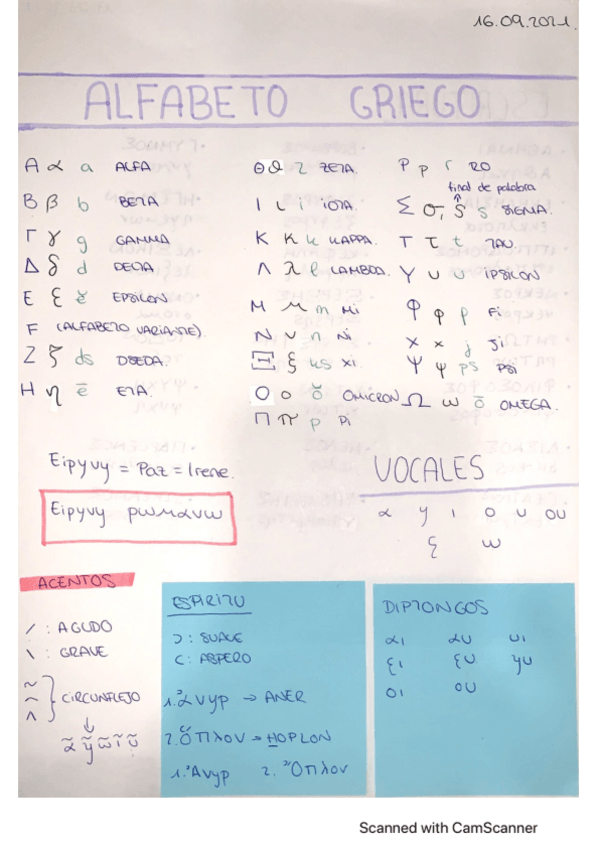 16.09.2021.
ALFABETO GRIEGO
A α a ALFA
B β b BETA
Γ γ g GAMMA
Δ δ d DELTA
E ε ĕ EPSILON
F (ALFABETO VARIANTE)
Z ζ ds DSEDA.
H η ē ETA.
Θ ϑ z ZETA.
I ι i IOTA.
K κ k KAPPA.
Λ λ l LAMBDA.
M μ m Mi
N ν n Ni
Ξ ξ ks Xi.
O o ŏ OMICRON
Π π p Pi
P ρ r RO
final de palabra
Σ σ, ς s SIGMA.
T τ t TAU.
Υ υ u IPSILON
Φ φ Fi
X x j Ji
Ψ ψ ps PSI
Ω ω ō OMEGA.
Eiρηνη = Paz = Irene.
Eiρηνη ρωμανω
VOCALES
α η ι o υ ου
ε ω
ACENTOS
/ : AGUDO
\ : GRAVE
~ ⌢ ʌ } CIRCUNFLEJO
α̃ η̃ ω̃ ι̃ υ̃
ESPIRITU
Ͻ : SUAVE
C : ASPERO
1. ἄνηρ → ANER
2. Ὅπλον → HOPLON
1. Ἄνηρ 2. Ὅπλον
DIPTONGOS
αι αυ υι
ει ευ ηυ
οι ου
Scanned with CamScanner